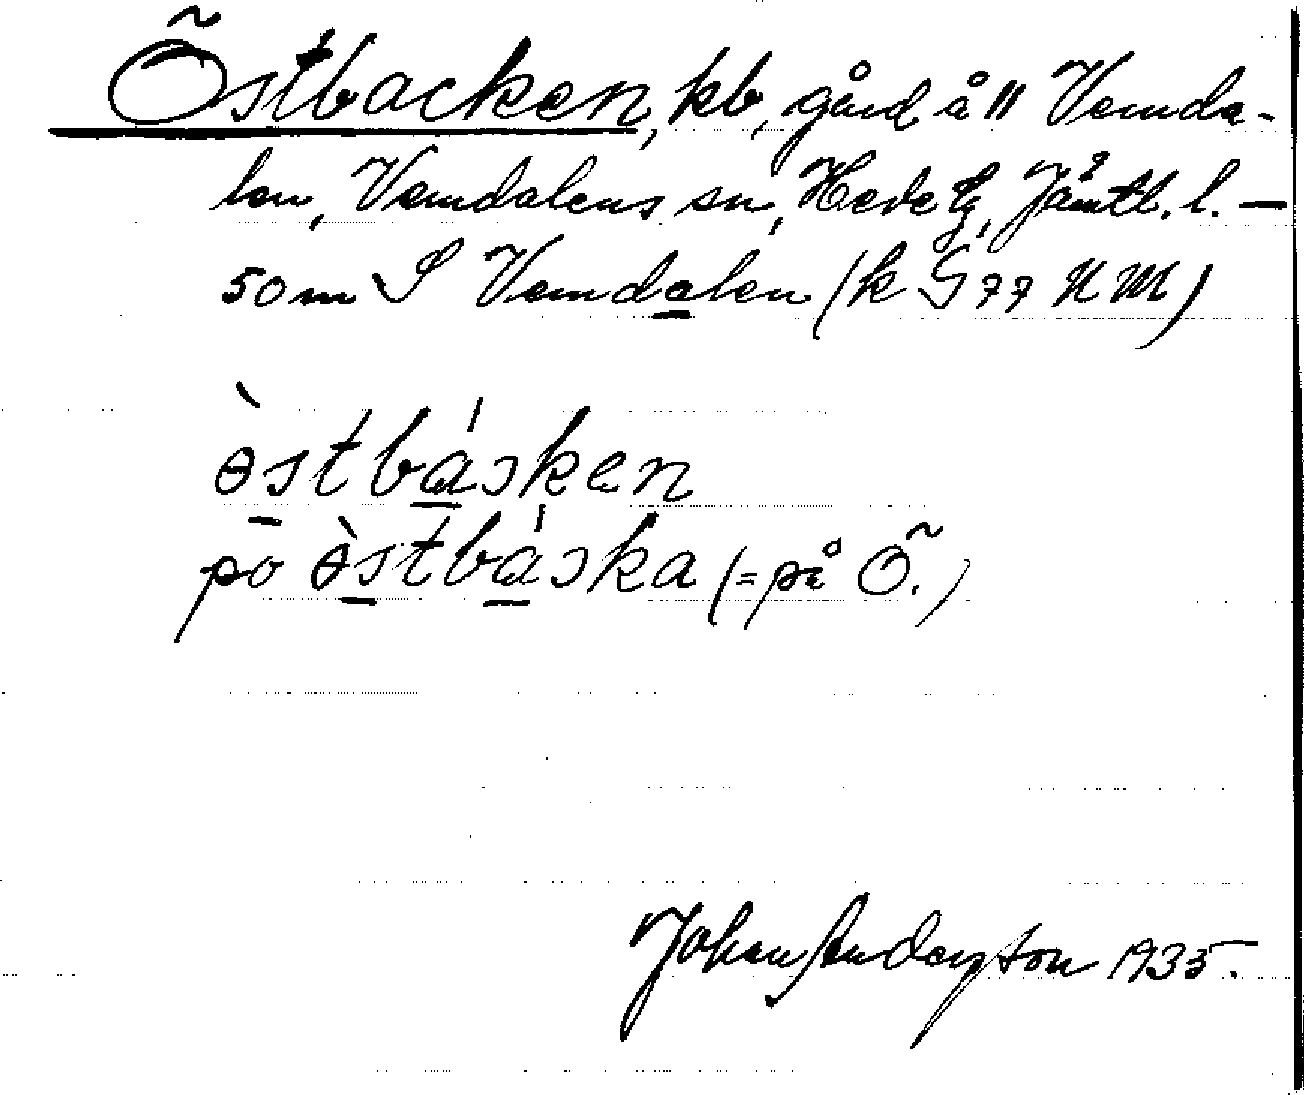 Östbacken, kb, gård å 11 Vemda-
len, Vemdalens sn, Hede tg, Jämtl. l. —
50 m S Vemdalen (k G 77 N M)
ɵ̀stbásken
po ɵ̀stbáska (= på Ö.)
Johan Anderson 1935.